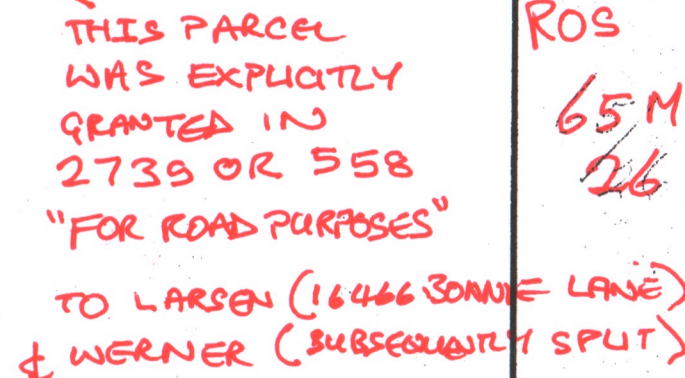 THIS PARCEL
WAS EXPLICITLY
GRANTED IN
2739 OR 558
"FOR ROAD PURPOSES"
TO LARSEN (16466 BONNIE LANE)
& WERNER (SUBSEQUENTLY SPLIT)
ROS
65 M
26